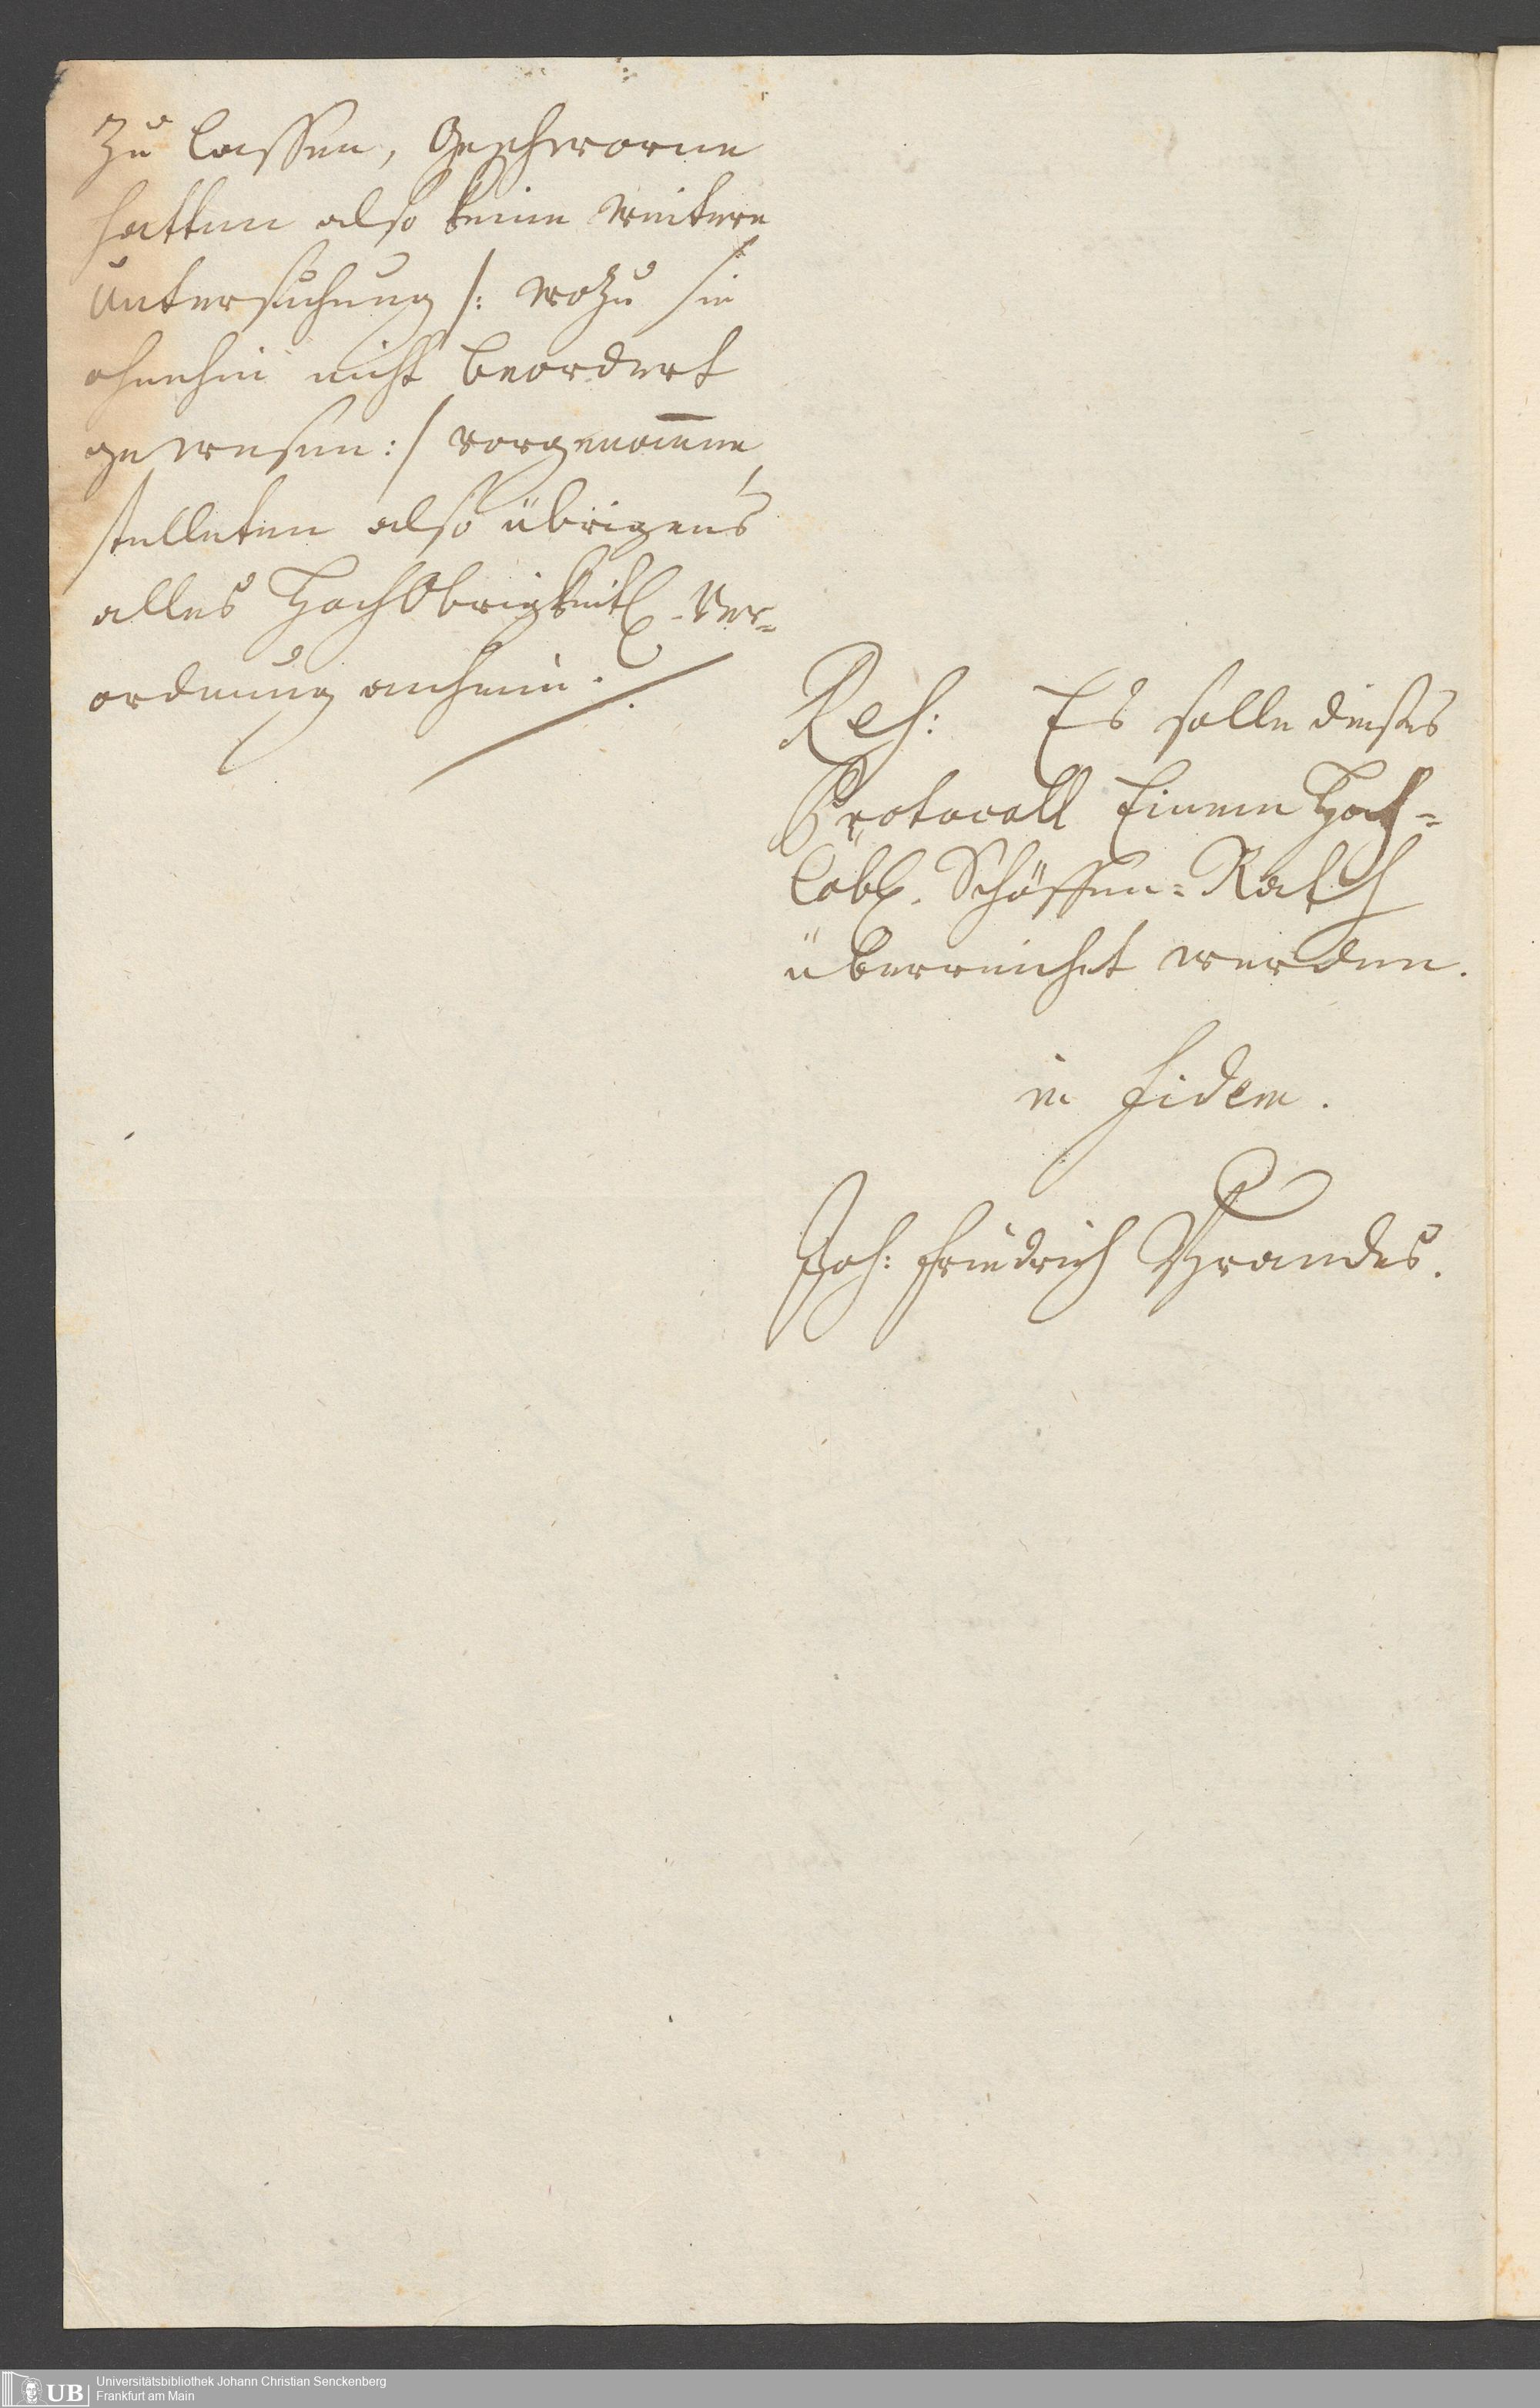 Zu lassen, Geschworne
hatten also keine weitere
Untersuchung /: wozu sie
ohnehin nicht beordert
gewesen :/ vorgenom̅ene,
stelleten also übrigens
alles HochObrigkeitl. Ver=
ordnung anheim.
Res: Es solle dießes
Protocoll Einem Hoch=
löbl. Schöffen=Rath
überreichet werden.
in fidem.
Joh: Friedrich Brandes.
UB
Universitätsbibliothek Johann Christian Senckenberg
Frankfurt am Main